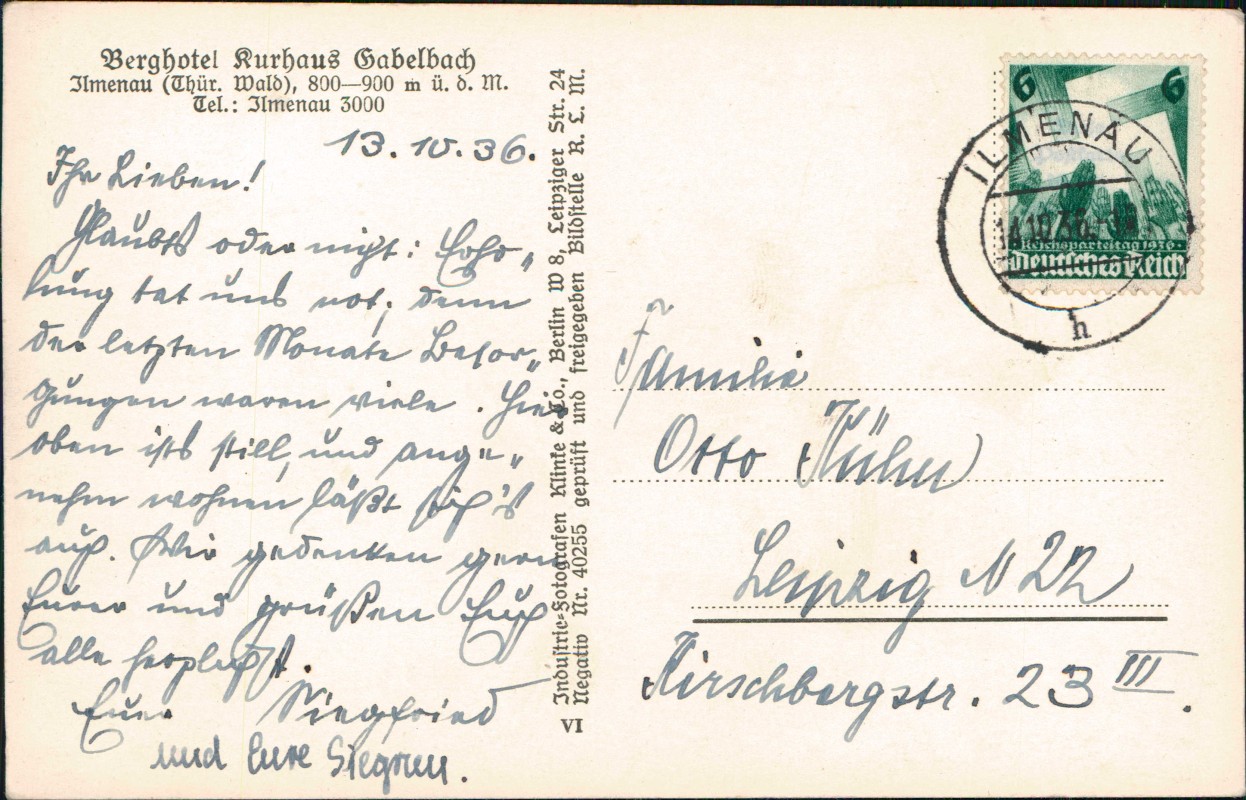 Berghotel Kurhaus Gabelbach
Ilmenau (Thür. Wald), 800—900 m ü. d. M.
Tel.: Ilmenau 3000
13.10.36.
Ihr Lieben!
Glaubts oder nicht: Erho„
lung tat uns not, denn
der letzten Monate Besor„
gungen waren viele. Hier
oben ists still, und ange„
nehm wohnen läßt sich's
auch. Wir gedenken gern
Eurer und grüßen Euch
alle herzlichst.
Euer Siegfried
und Eure Siegrun.
Industrie-Fotografen Klinke & Co., Berlin W 8, Leipziger Str. 24
Negativ Nr. 40255 geprüft und freigegeben Bildstelle R. L. M.
VI
6 6
Reichsparteitag 1936
Deutsches Reich
ILMENAU
14.10.36
h
Familie
Otto Kühn
Leipzig N 22
Kirschbergstr. 23 III.